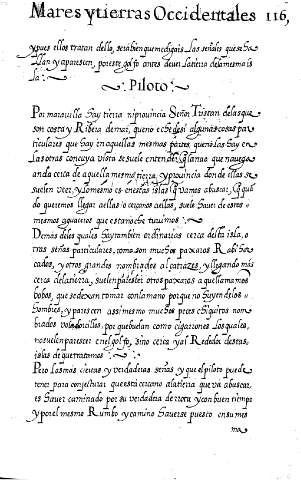 Mares y tierras Occidentales 116,
ypues ellos tratan dello, sera bien que me digais las señales que se ha
llan y aparescen, por este golfo antes de ver la tierra de la mesma is
la
Piloto
Por maravilla hay tierra ni provincia Señor Tristan delas que
son costa y Ribera de mar, que no eche de si algunas cosas pa
ticulares que hay en aquellas mesmas partes, que no las hay en
las otras con cuya vista se suele entender que la nao que navega
ando cerca de aquella mesma tierra, y provincia donde ellas se
suelen veer, y lo mesmo es en estas islas que vamos abuscar, que quã
do queremos llegar a ellas o cercamos a ellas, suele haver de estos
mesmos aguaceros que esta noche tuvimos
Demas de los quales hay tambien ordinarias cerca della isla, o
tras señas particulares, como son muchos paxaros Rabi hor
cados, y otros grandes nombrados alcatrazes, y llegando mas
cerca de la tierra, suelen parescer otros paxaros a que llamamos
bobos, que se dexan tomar con la mano porque no huyen de los
hombres, y parescen assimesmo muchos peces chiquitos nom
brados voladorcillos, porque budan como cigarrones los quales,
no suelen parescer en el golfo, sino cerca y al Rededor destas,
islas de que tratamos
Pero las mas ciertas y verdaderas señas, y que el piloto puede
tener para conjeturar que esta cercano a la tierra que va a buscar,
es haver caminado por su verdadera derrota y con buen tiempo
y por el mesmo Rumbo y camino haverse puesto en su mes
ma